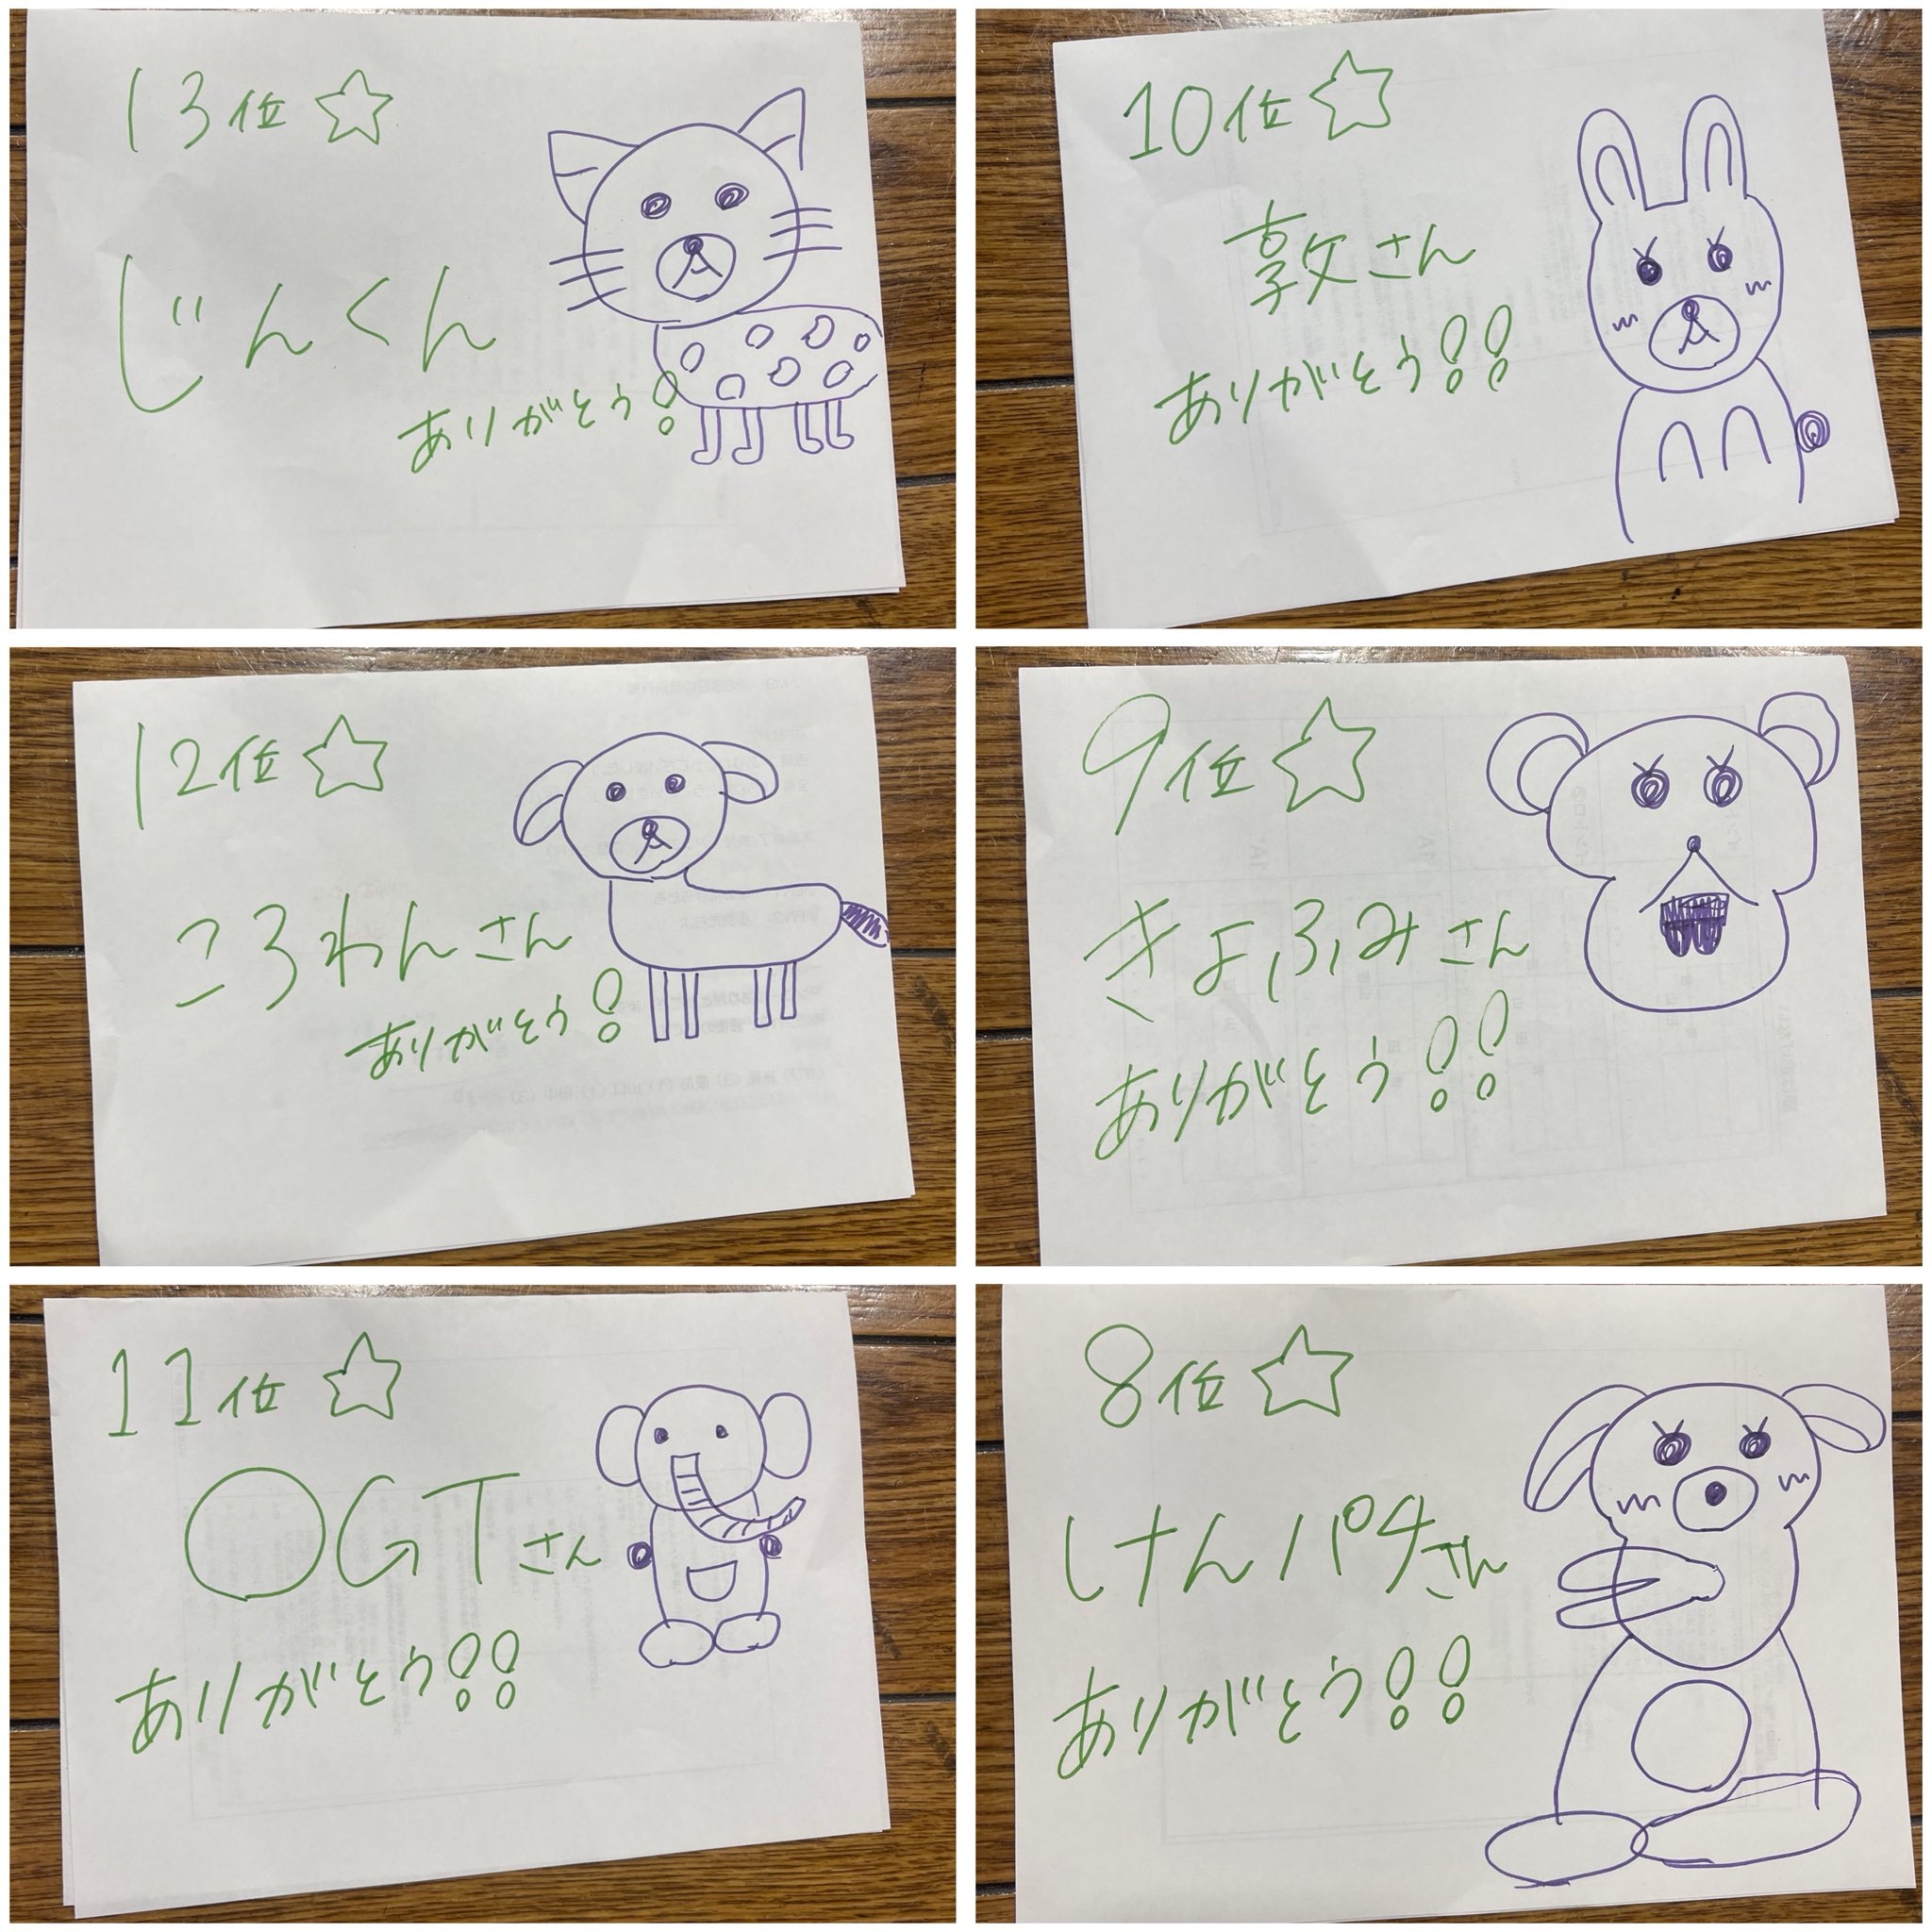 13位☆
じんくん
ありがとう!
12位☆
ころわんさん
ありがとう!
11位☆
OGTさん
ありがとう!!
10位☆
敦さん
ありがとう!!
9位☆
きよふみさん
ありがとう!!
8位☆
けんパチさん
ありがとう!!